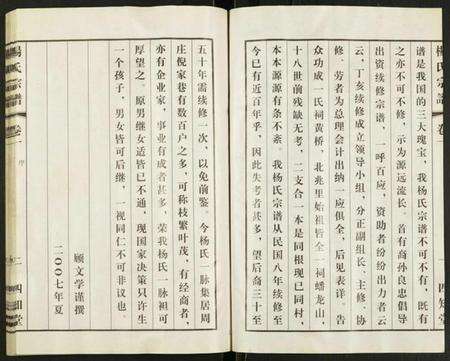 楊氏宗譜
卷一
四知堂
谱是我国的三大瑰宝，我杨氏宗谱不可不有，既有
之亦不可不修，示为源远流长。首有裔孙良忠倡导
出资续修宗谱，一呼百应，资助者纷纷出力者云
云，丁亥续修成立领导小组，分正副组长、主修、协
修。劳者为总理会计出纳一应俱全，后见表详。告
众功成一氏祠黄桥，北兆里始祖皆全一祠蟠龙山，
十八世前残缺无考，二支合一本是同根现已同村，
本本源源有条不紊。我杨氏宗谱从民国八年续修至
今已有近百年乎，因此失考者甚多，望后裔三十至
五十年需续修一次，以免前鉴。今杨氏一脉集居周
庄倪家巷有数百户之多，可称枝繁叶茂，有经商者，
亦有企业家，事业有成者甚多，荣我杨氏一脉祖可
厚望之。原男继女适皆已不通，现国家决策只许生
一个孩子，男女皆可后继，一视同仁不可非议也。
顾文学谨撰
二〇〇七年夏
楊氏宗譜
卷一
序
四知堂